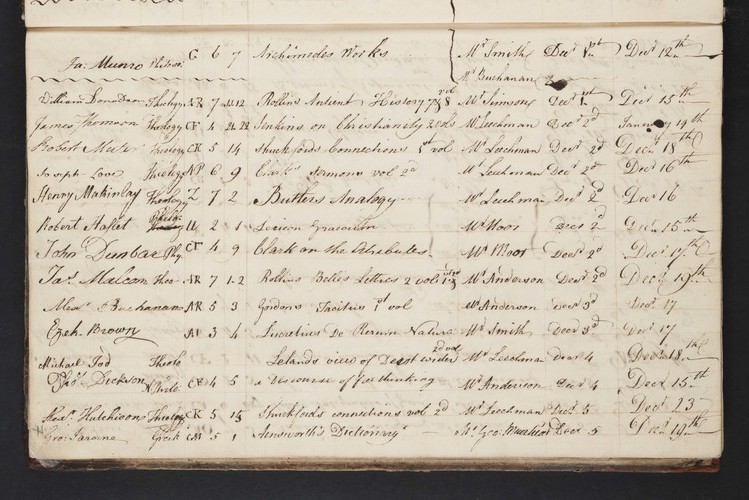 Ja: Munro G 6 7 Archimedes Works Mr Smith Decr 1st Decr 12th
Mr Buchanan
William Theology AR 7 11.12 Rollins Antient History 7 & 8 vol Mr Simson Decr 1st Decr 15th
James Thomson Theology CF 4 21.22 Jenkins on Christianity 2 vols Mr Leechman Decr 2d January 19th
Robert Theology CK 5 14 Shuckfords Connections 1st vol Mr Leechman Decr 2d Decr 18th
Joseph Love Theology NP 6 9 Clarks Sermons vol 2d Mr Leechman Decr 2d Decr 16th
Henry Makinlay Theology 7 2 Butlers Analogy Mr Leechman Decr 2d Decr 16
Robert 2 1 Lexicon Graecum Mr Moor Decr 2d Decr 15th
John Dunbar Phy CF 4 9 Clark on the Attributes Mr Moor Decr 2d Decr 17th
Jas Malcom Theo AR 7 1.2 Rollins Belles Lettres 2 vols Mr Anderson Decr 2d Decr 19th
Alexr Buchanan AR 5 3 Gordons Tacitus 1st vol Mr Anderson Decr 3d Decr 17
Ezek Brown 3 4 Lucretius De Rerum Natura Mr Smith Decr 3d Decr 17
Michael Tod Theolo Lelands view of 2d vol Mr Leechman Decr 4 Decr 18th
Thos Dickson CF 4 5 a Discourse of freethinking Mr Anderson Decr 4 Decr 15th
Hutchison Theology CK 5 15 Shuckfords connections vol 2d Mr Leechman Decr 5 Decr 23
Geo: Jardine Greek 5 1 Ainsworth's Dictionary Mr Geo: Muirhead Decr 5 Decr 19th